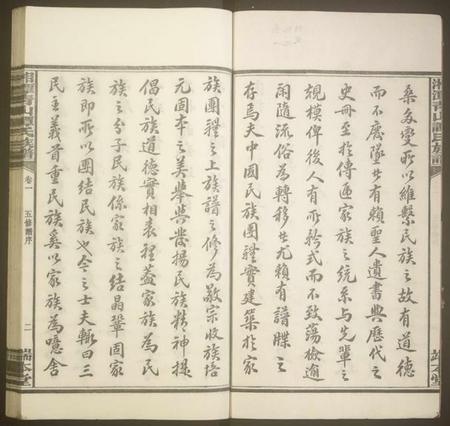 桑嬗變所以維繫民族之故有道德
而不廢墜者有賴聖人遺書與歷代之
史冊至於傳遞家族之統系与先輩之
規模俾後人有所矜式而不致蕩檢逾
閑隨流俗為轉移者尤賴有譜牒之
存焉夫中國民族團體實建築於家
族團體之上族譜之修為敬宗收族培
元固本之美舉與發揚民族精神提
倡民族道德實相表裡蓋家族為民
族之分子民族係家族之結晶鞏固家
族即所以團結民族也今之士夫輒曰三
民主義首重民族奚以家族為噫舍
卷一
五修譜序
二
端本堂